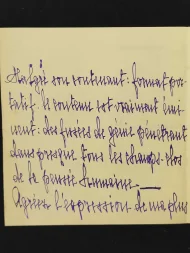 Malgré son contenant: format por-
tatif. le contenu est vraiment émi-
nent: des fusées de génie pénètrent
dans presque tous les champs clos
de la pensée humaine.—
Agréez l'expression de ma plus